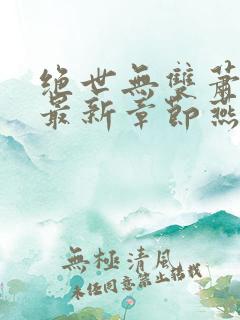 绝世無雙蕭
最新章節燕
無極清風
未经同意禁止转载